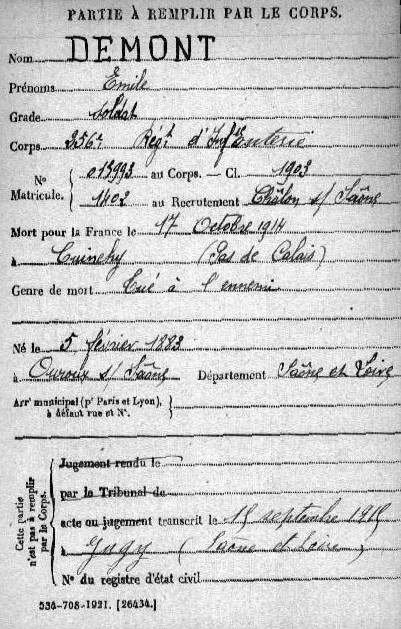 PARTIE À REMPLIR PAR LE CORPS.
Nom DEMONT
Prénoms Emile
Grade soldat
Corps 256e Régt d'Infanterie
N° Matricule. { 013993 au Corps. — Cl. 1903
1402 au Recrutement Châlon s/ Saône
Mort pour la France le 17 Octobre 1914
à Cuinchy (Pas de Calais)
Genre de mort Tué à l'ennemi
Né le 5 février 1883
à Ouroux s/ Saône Département Saône et Loire
Arrt municipal (pr Paris et Lyon), à défaut rue et N°. }
Cette partie n'est pas à remplir par le Corps.
Jugement rendu le
par le Tribunal de
acte ou jugement transcrit le 15 septembre 1915
à Jugy (Saône et Loire)
N° du registre d'état civil
534-708-1921. [26434.]